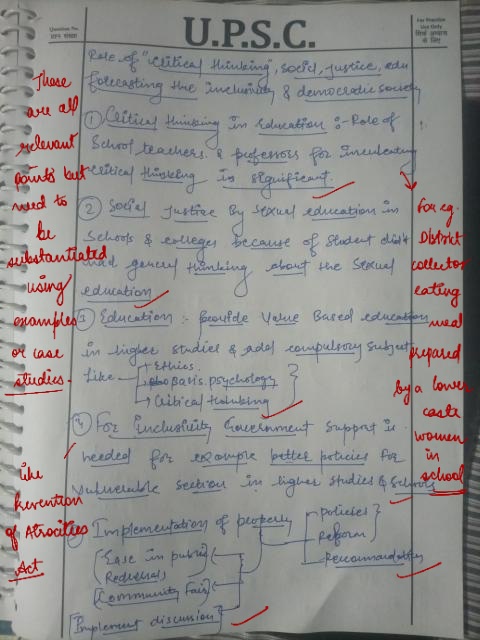 Question No.
प्रश्न संख्या
U.P.S.C.
For Practice
Use Only
सिर्फ अभ्यास
के लिए
Role of "Critical thinking", social, justice, edu
forecasting the Inclusivity & democratic society
① Critical thinking in education :- Role of
School teachers & professors for inculcating
critical thinking is significant.
② Social Justice By Sexual education in
Schools & colleges because of student didn't
had general thinking about the Sexual
education
③ Education :- provide Value Based education
in higher studies & add compulsory subject
Like
→ Ethics
psychology
→ Critical thinking
④ For Inclusivity Government Support is
needed for example better policies for
vulnerable section in higher studies & Schools
Implementation of properly
policies
Reform
Recommendation
Ease in public
Redressal
Community Fair
Implement discussion
These
are all
relevant
points but
need to
be
substantiated
using
examples
or case
studies.
like
Prevention
of Atrocities
Act
For eg.
District
collector
eating
meal
prepared
by a lower
caste
women
in
school